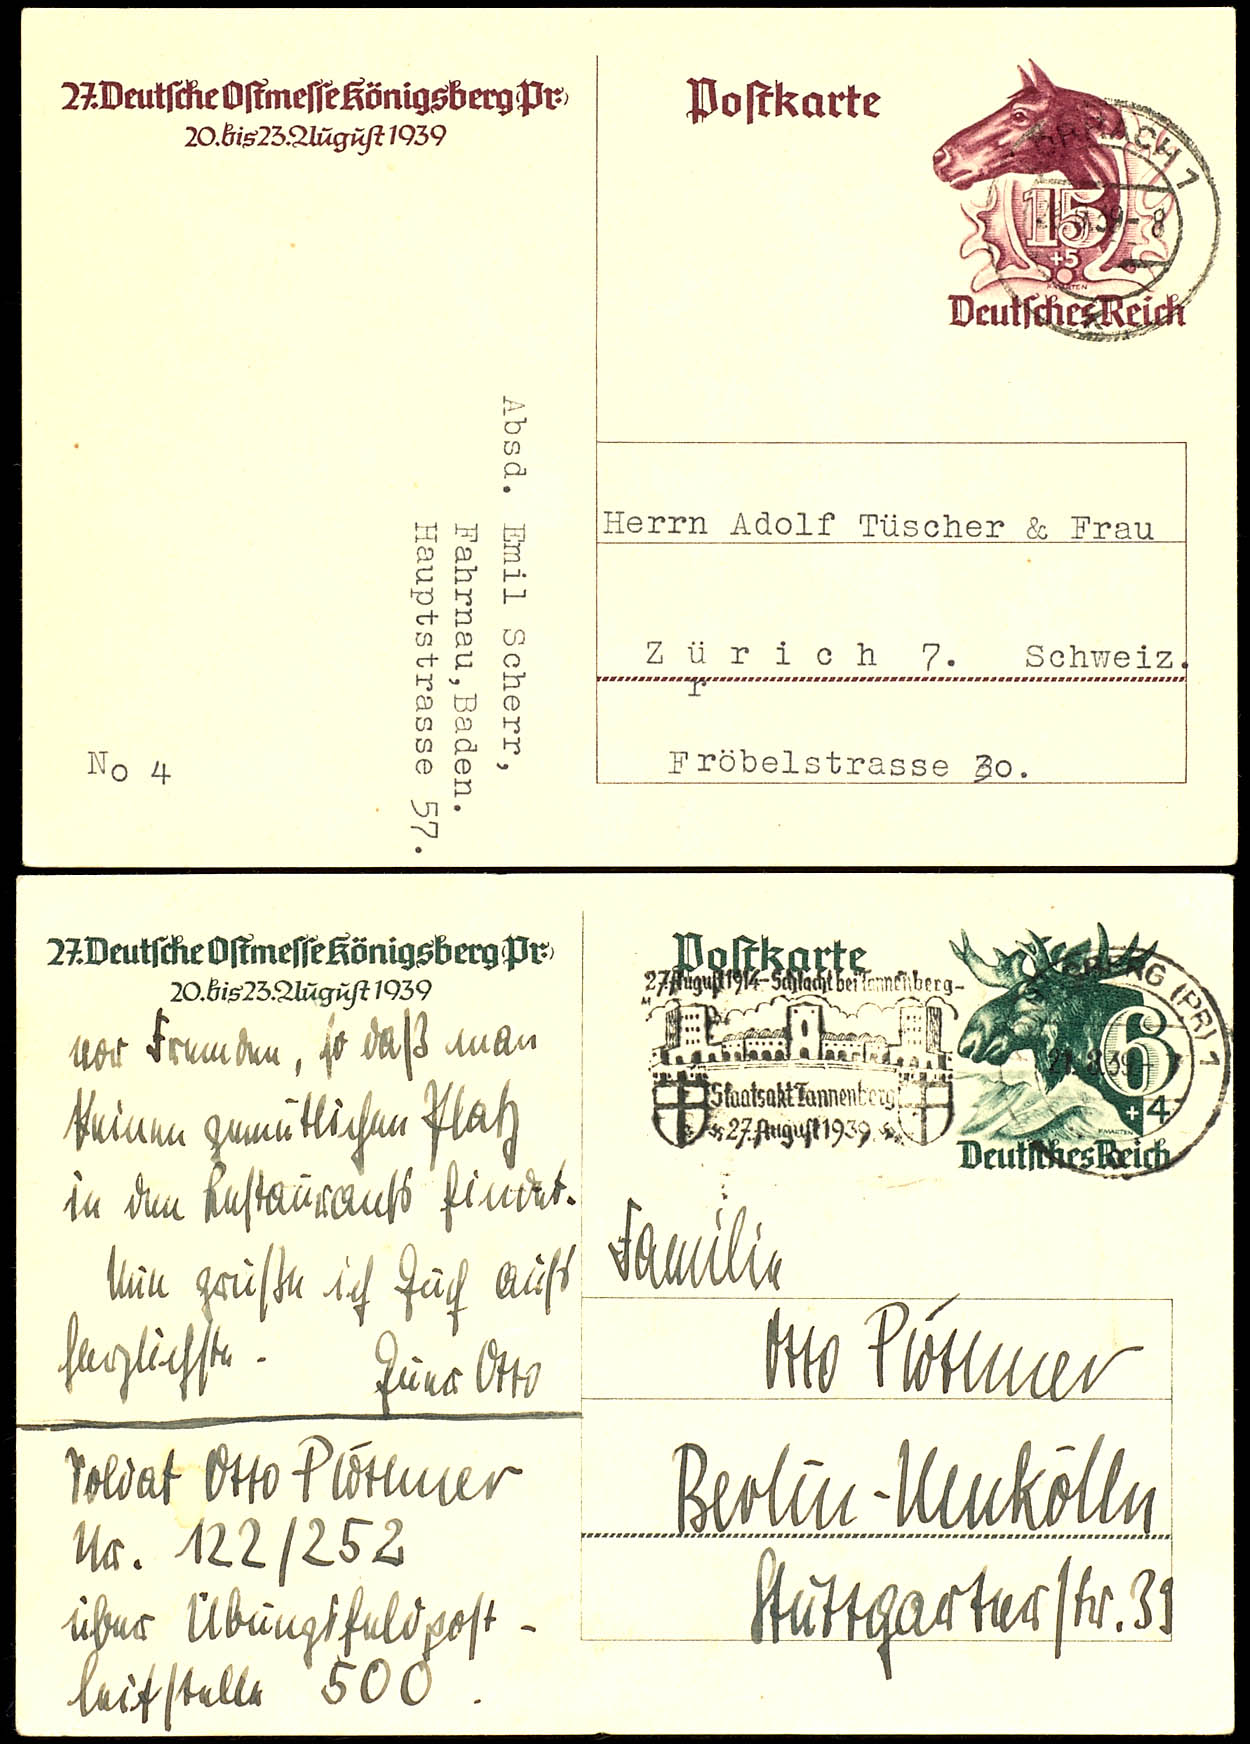 27. Deutsche Ostmesse Königsberg (Pr.)
20. bis 23. August 1939
Postkarte
15
+5
Deutsches Reich
Absd. Emil Scherr,
Fahrnau, Baden.
Hauptstrasse 57.
No 4
Herrn Adolf Tüscher & Frau
Zürich 7. Schweiz.
r
Fröbelstrasse 30.
27. Deutsche Ostmesse Königsberg (Pr.)
20. bis 23. August 1939
vor Fremden, so daß man
keinen gemütlichen Platz
in den Restaurants findet.
Nun grüße ich Euch aufs
herzlichste.
Euer Otto
Soldat Otto Plöthner
Nr. 122/252
über Übungsfeldpost-
leitstelle 500.
Postkarte
27. August 1914 - Schlacht bei Tannenberg -
Staatsakt Tannenberg
27. August 1939
BERG (PR) 1
21.8.39
6
+4
Deutsches Reich
Familie
Otto Plöthner
Berlin-Neukölln
Stuttgarterstr. 39